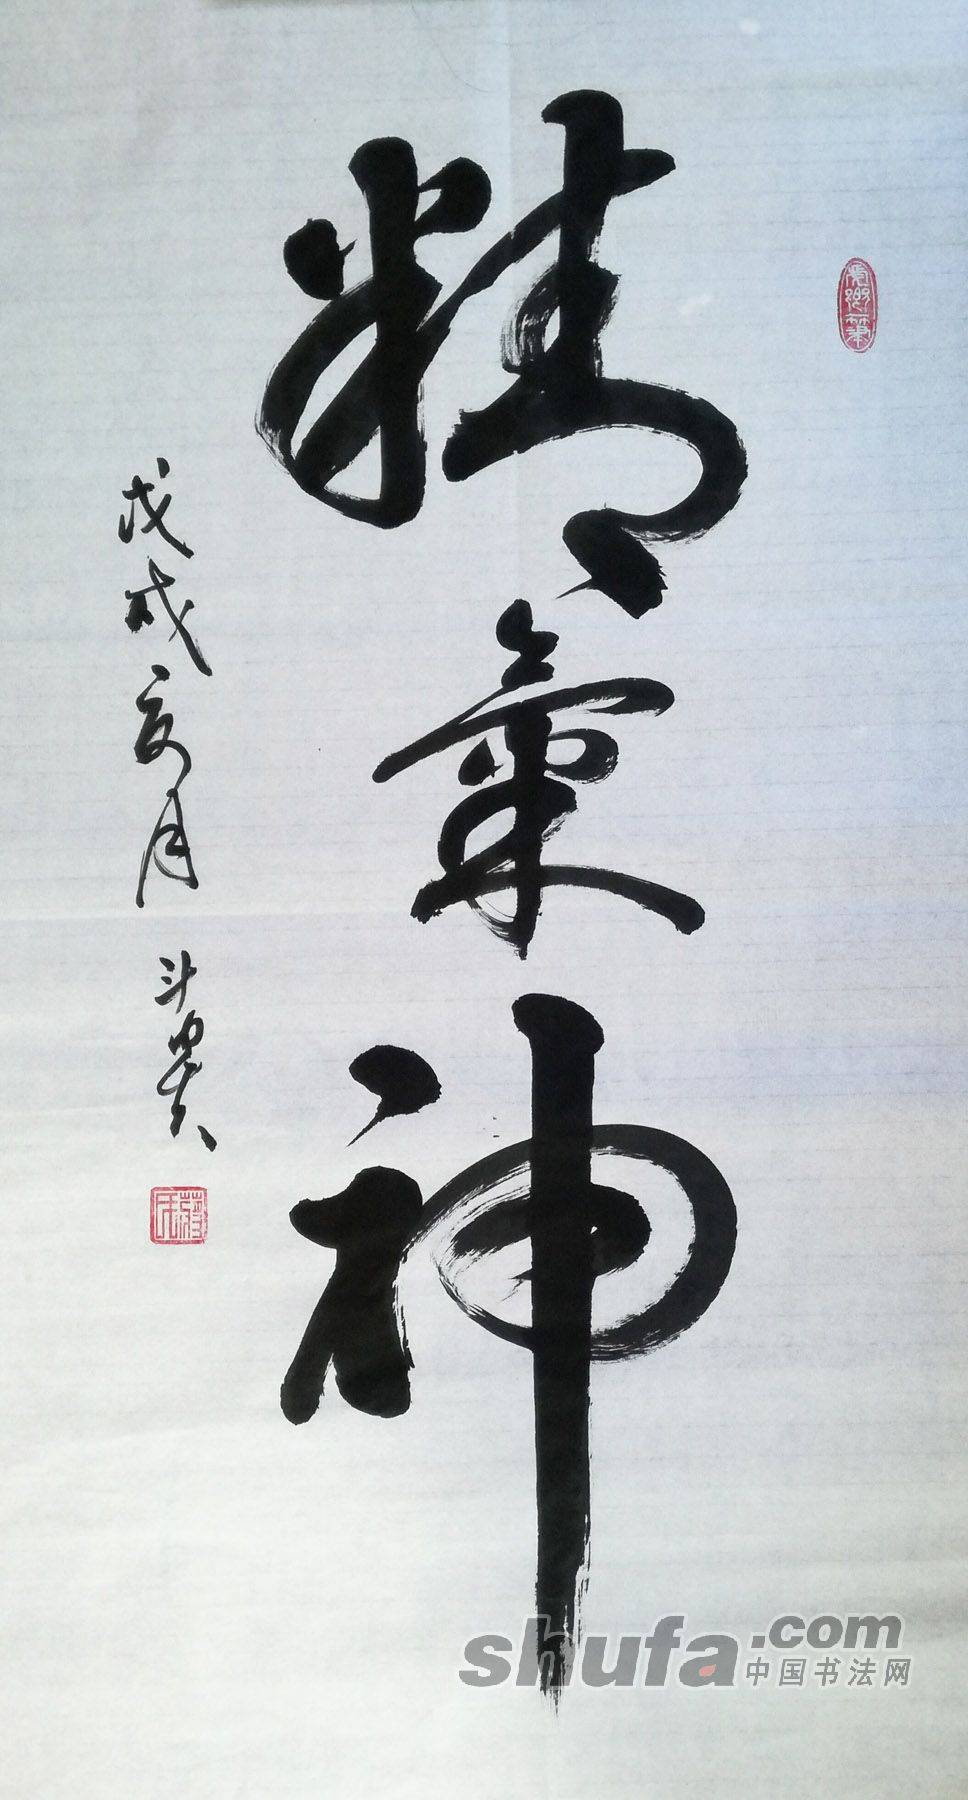 精氣神
戊戌亥月 斗昊
shufa.com
中国书法网